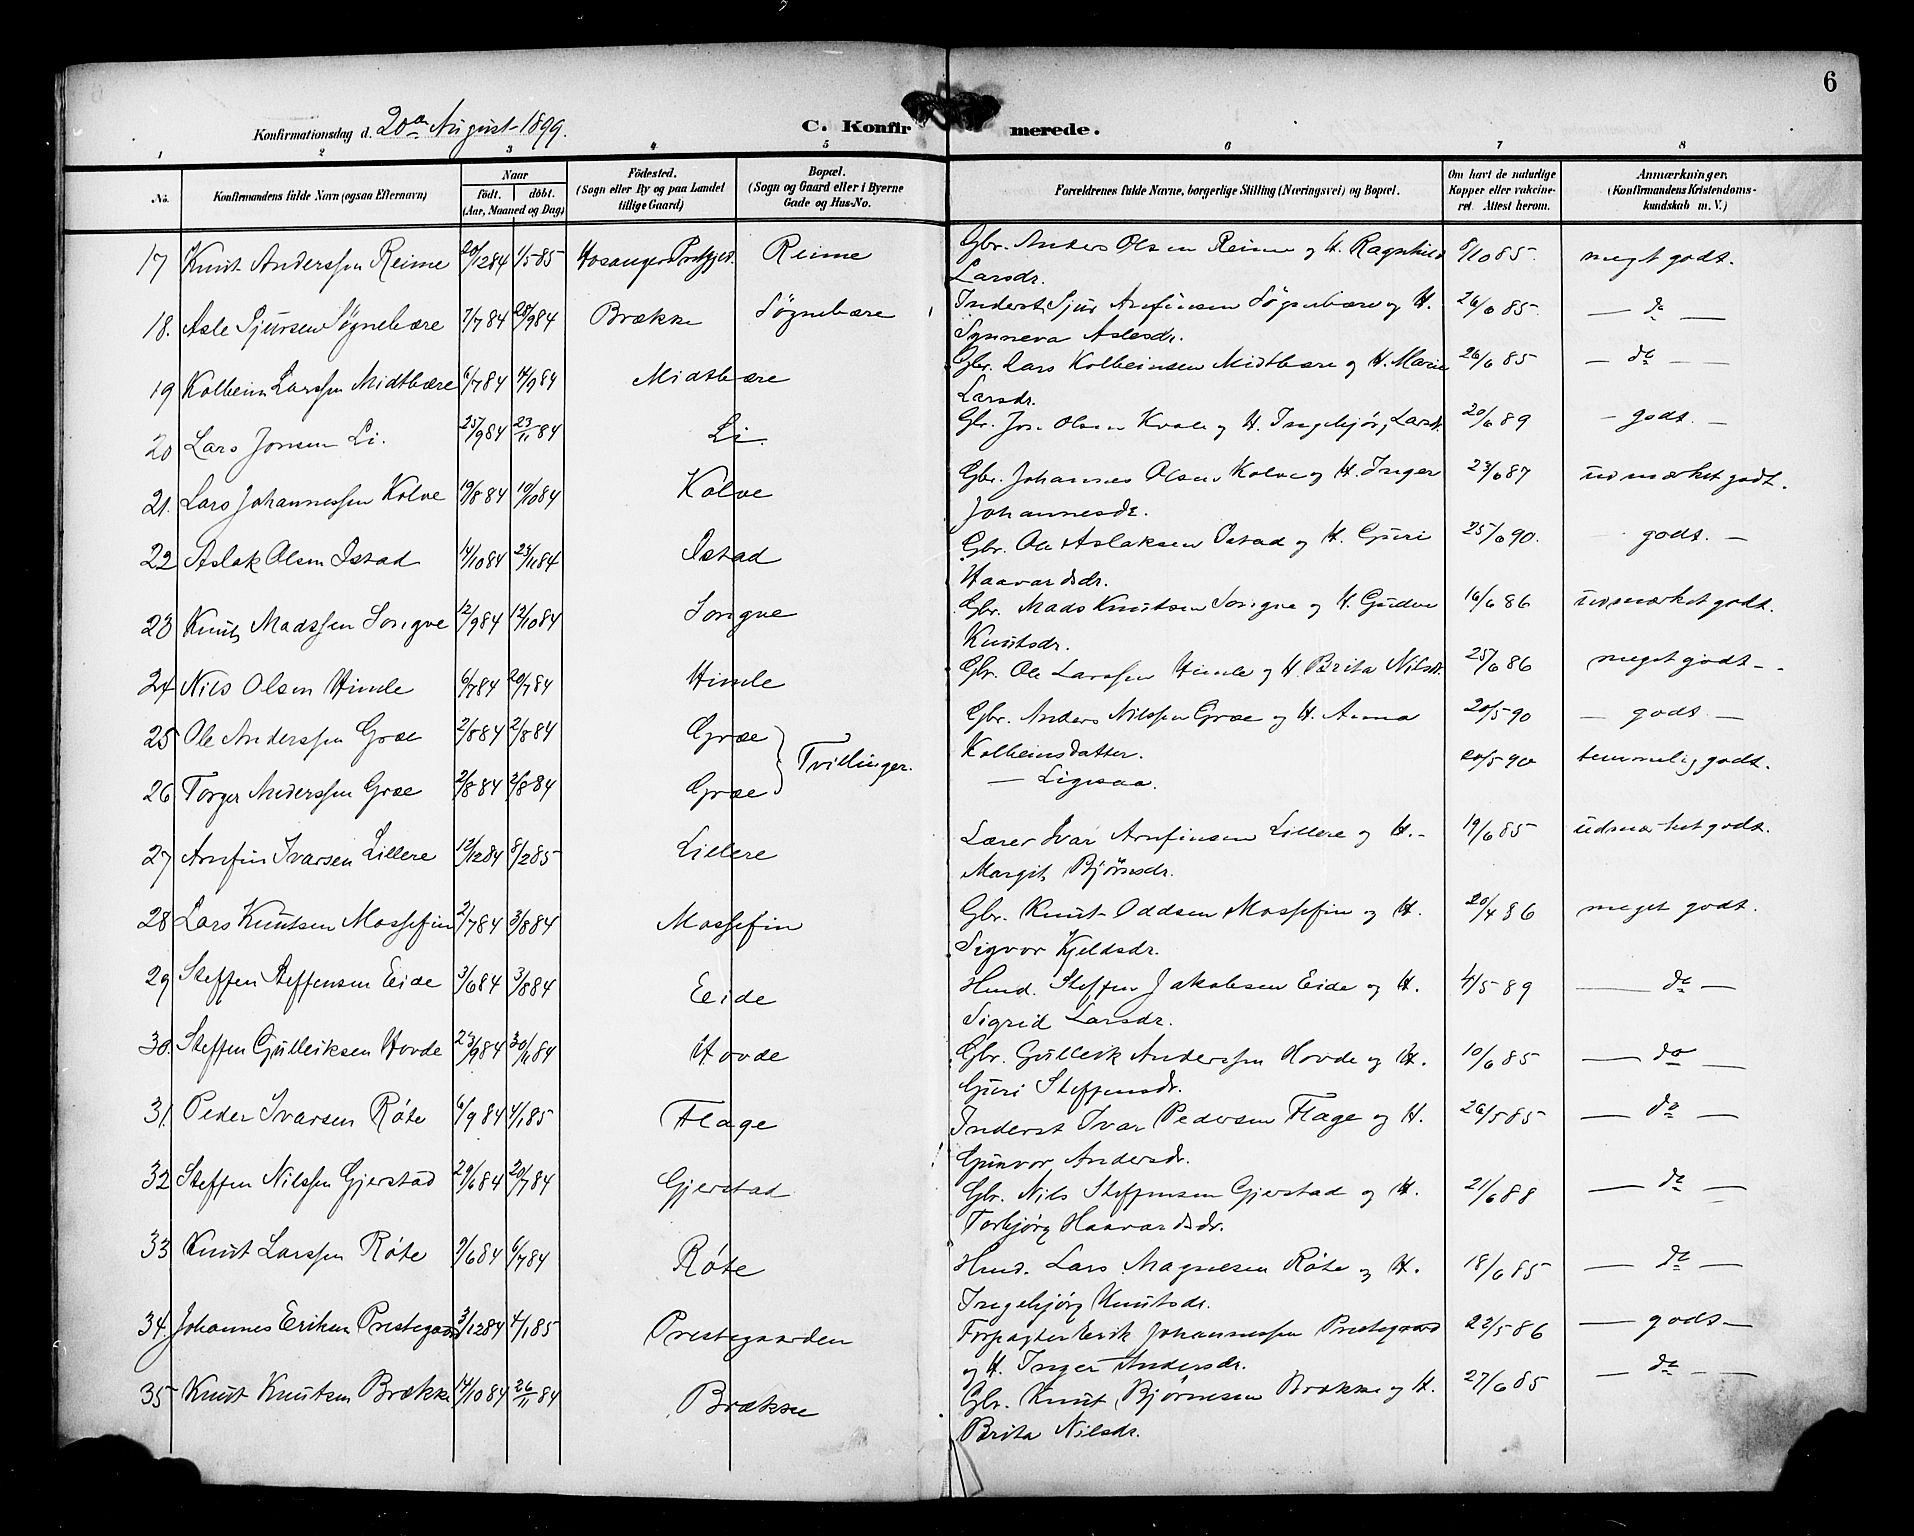 6
Konfirmationsdag d. 20de August 1899.
C. Konfirmerede.
1 2 3 4 5 6 7 8
No. Konfirmandens fulde Navn (ogsaa Efternavn) Naar født. døbt. (Aar, Maaned og Dag) Fødested. (Sogn eller By og paa Landet tillige Gaard) Bopæl. (Sogn og Gaard eller i Byerne Gade og Hus-No. Forældrenes fulde Navne, borgerlige Stilling (Næringsvei) og Bopæl. Om havt de naturlige Kopper eller vaccineret. Attest herom. Anmærkninger, (Konfirmandens Kristendomskundskab m. V.)
17 Knut Anderssen Reime 20/12 84 1/5 85 Hosanger Prstgjd. Reime Gbr. Anders Olsen Reime og H. Ragnhild 9/10 85. megt godt.
Larsdr.
18. Asle Sjursen Søgnebære 7/7 84 28/9 84 Brække Søgnebære Inderst Sjur Arnfinsen Søgnebære og H. 26/6 85. — do —
Synneva Aslesdr.
19 Kolbein Larssen Midtbære 6/7 84 14/9 84 Midtbære Gbr. Lars Kolbeinsen Midtbære og H. Marie 26/6 85 — do —
Larsdr.
20 Lars Jonsen Li. 25/9 84 23/11 84 Li. Gbr. Jon Olsen Kvale og H. Ingebjør, Larsd. 20/6 89 — godt. —
21. Lars Johannessen Kolve 19/8 84 19/10 84 Kolve Gbr. Johannes Olsen Kolve og H. Inger 23/6 87 udmærket godt.
Johannesdr.
22 Aslak Olsen Istad 14/10 84 23/11 84 Istad Gbr. Ole Aslaksen Istad og H. Guri 25/6 90. godt. —
Haavardsdr.
23 Knut Madssen Sonigve 12/9 84 12/10 84 Sonigve Gbr. Mads Knutsen Sonigve og H. Gudve 16/6 86 udmærket godt.
Knutsdr.
24 Nils Olsen Himle 6/7 84 20/7 84 Himle Gbr. Ole Larssen Himle og H. Brita Nilsdr. 25/6 86 meget godt —
25 Ole Anderssen Græe 2/8 84 2/8 84 Græe Gbr. Anders Nilssen Græe og H. Anna 20/5 90 — godt. —
Tvillinger. Kolbeinsdatter.
26 Torger Anderssen Græe 2/8 84 2/8 84 Græe — Ligesaa. 20/5 90 temmelig godt.
27 Arnfin Ivarsen Lillere 12/12 84 8/2 85 Lillere Lærer Ivar Arnfinsen Lillere og H. 19/6 85 udmærket godt.
Margit Bjørnsdr.
28 Lars Knutsen Mossefin 2/7 84 3/8 84 Mossefin Gbr. Knut Oddsen Mossefin og H. 20/4 86 meget godt.
Sigvor Kjeldsdr.
29 Steffen Steffensen Eide 3/6 84 3/8 84 Eide Hmd. Steffen Jakobsen Eide og H. 4/5 89 — do —
Sigrid Larsdr.
30. Steffen Gulleiksen Hovde 23/9 84 30/11 84 Hovde Gbr. Gulleik Anderssen Hovde og H. 10/6 85 — do
Guri Steffensdr.
31. Peder Ivarsen Røte 6/9 84 4/1 85 Flage Inderst Ivar Pedersen Flage og H. 26/5 85 — do —
Gunvor Andersdr.
32 Steffen Nilssen Gjerstad 29/6 84 20/7 84 Gjerstad Gbr. Nils Steffensen Gjerstad og H. 21/6 88 — do —
Torbjørg Haavardsdr.
33 Knut Larssen Røte 9/6 84 6/7 84 Røte Hmd. Lars Magnesen Røte og H. 18/6 85 — do —
Ingebjørg Knutsdr.
34. Johannes Eriksen Prestegaard 3/12 84 4/1 85 Prestegaarden Forpagter Eerik Johannessen Prestegaard 22/5 86 — godt —
og H. Inger Andersdr.
35 Knut Knutsen Brække 14/10 84 26/11 84 Brække Gbr. Knut Bjørnesen Brække og H. 27/6 85 — do —
Brita Nilsdr.